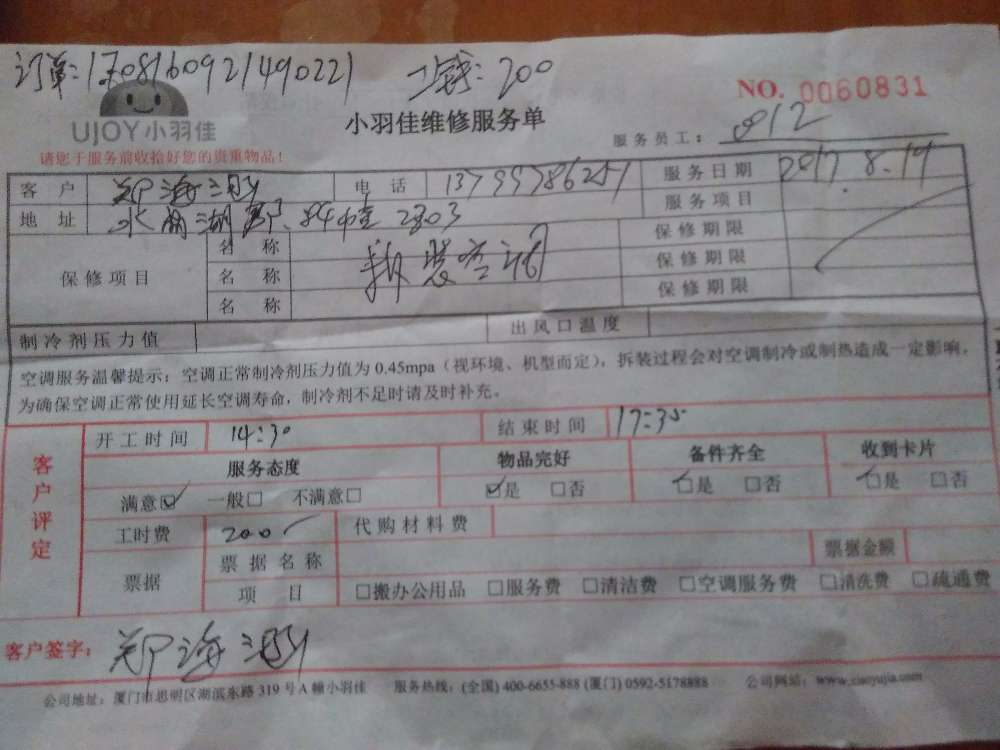 订单:170816092149022​1 工钱:200
NO. 0060831
UJOY小羽佳
小羽佳维修服务单
服务员工: 812
请您于服务前收拾好您的贵重物品!
客户 郑海 电话 13799786251 服务日期 2017.8.19
地址 水 湖 84幢 2803 服务项目
保修项目 名称 拆装空调 保修期限
名称 保修期限
名称 保修期限
制冷剂压力值 出风口温度
空调服务温馨提示:空调正常制冷剂压力值为0.45mpa(视环境、机型而定),拆装过程会对空调制冷或制热造成一定影响,
为确保空调正常使用延长空调寿命,制冷剂不足时请及时补充。
客户评定
开工时间 14:30 结束时间 17:35
服务态度 物品完好 备件齐全 收到卡片
满意☑ 一般□ 不满意□ ☑是 □否 ☑是 □否 ☑是 □否
工时费 200 代购材料费
票据 票据名称 票据金额
项目 □搬办公用品 □服务费 □清洁费 □空调服务费 □清洗费 □疏通费
客户签字: 郑海
公司地址:厦门市思明区湖滨东路319号A幢小羽佳 服务热线:(全国)400-6655-888 (厦门)0592-5178888 公司网站:www.xiaoyujia.com